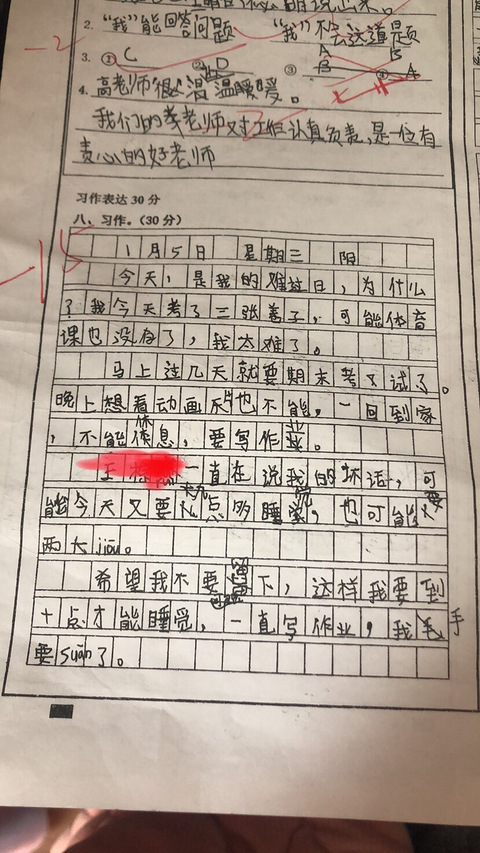 2. "我"能回答问题 "我"不会这道题
3. ① C ② D ③ B ④ A
4. 高老师很 温暖。
我们的李老师对工作认真负责,是一位有
责心的好老师
-2
习作表达30分
八、习作。(30分)
-15
1月5日 星期三 阴
今天,是我的难过日,为什么
?我今天考了三张卷子,可能体育
课也没有了,我太难了。
马上过几天就要期末考试了。
晚上想看动画片也不能,一回到家
,不能休息,要写作业。
王 一直在说我的坏话,可
能今天又要 点多睡觉,也可能要
两大jiāo。
希望我不要留下,这样我要到
十点才能睡觉,一直写作业,我手
要suān了。